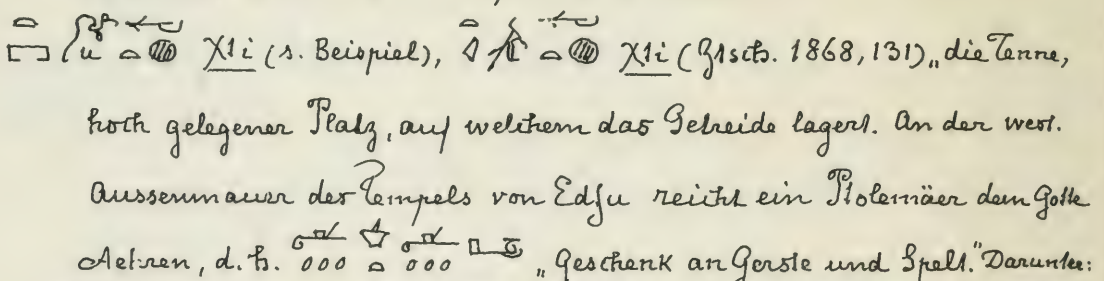 χti (s. Beispiel), χti (Ztsch. 1868, 131) „die Tenne,
hoch gelegener Platz, auf welchem das Getreide lagert. An der west.
Aussenmauer des Tempels von Edfu reicht ein Ptolemäer dem Gotte
Aehren, d. h. „Geschenk an Gerste und Spelt.“ Darunter: